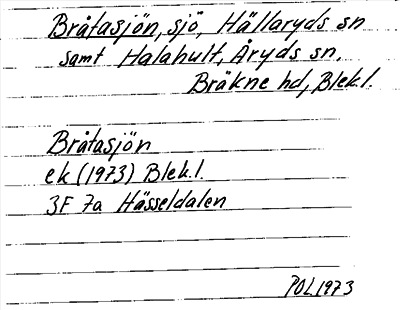 Bråtasjön, sjö, Hällaryds sn
samt Halahult, Åryds sn.
Bräkne hd, Blek.l.
Bråtasjön
ek (1973) Blek.l.
3F 7a Hässeldalen
POL 1973